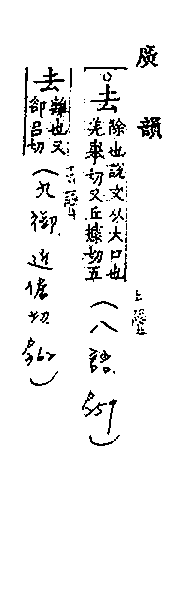 广韻
去
除也說文从大口也
羌舉切又丘據切五
上聲
（八語. P259）
去
離也又
卻呂切
去聲
（九御. 近倨切. P362）